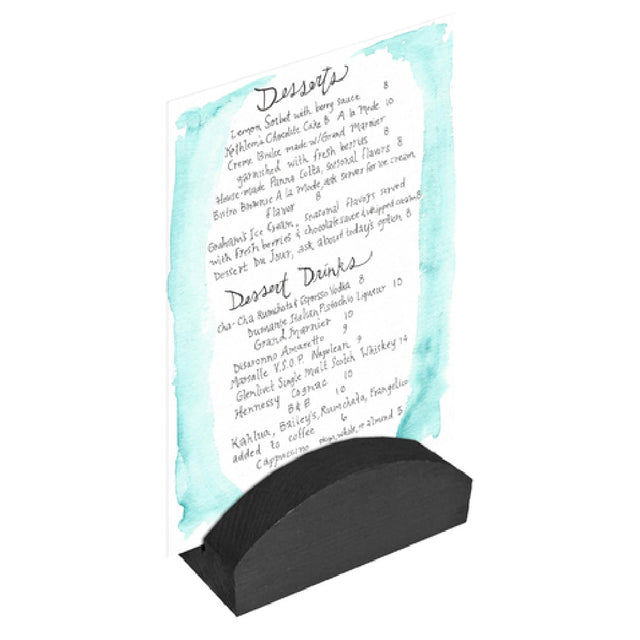 Desserts
Lemon Sorbet with berry sauce 8
Chocolate Cake 8 A la Mode 10
Creme Brulee made w/Grand Marnier
garnished with fresh berries 8
House-made Panna Cotta, seasonal flavors 8
Bistro Brownie A la Mode, ask server for ice cream
flavor 8
Graham's Ice Cream, seasonal flavors served
with fresh berries & chocolate sauce & whipped cream 8
Dessert Du Jour, ask about today's option 8
Dessert Drinks
Cha-Cha Rumchata & Espresso Vodka 8
Dumante Italian Pistachio Liqueur 10
Grand Marnier 10
Disaronno Amaretto 9
Marsille V.S.O.P. Napolean 9
Glenlivet Single Malt Scotch Whiskey 14
Hennessy Cognac 10
B&B 10
Kahlua, Bailey's, Rumchata, Frangelico
added to coffee 6
Cappuccino whole, or almond 5